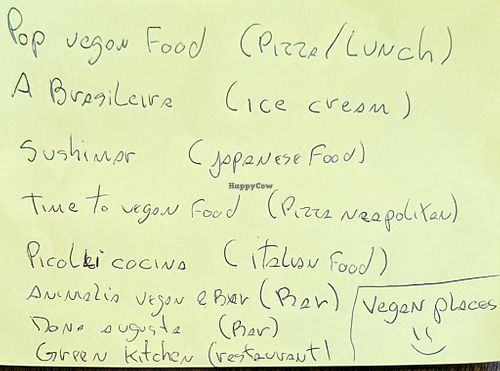 Pop vegan Food (Pizza/Lunch)
A Brasileira (ice cream)
Sushimar (japanese Food)
HappyCow
Time to vegan Food (Pizza neapolitan)
Picolli cocina (italian Food)
Animalia vegan e Bar (Bar)
Dona augusta (Bar)
Green Kitchen (restaurant)
vegan places